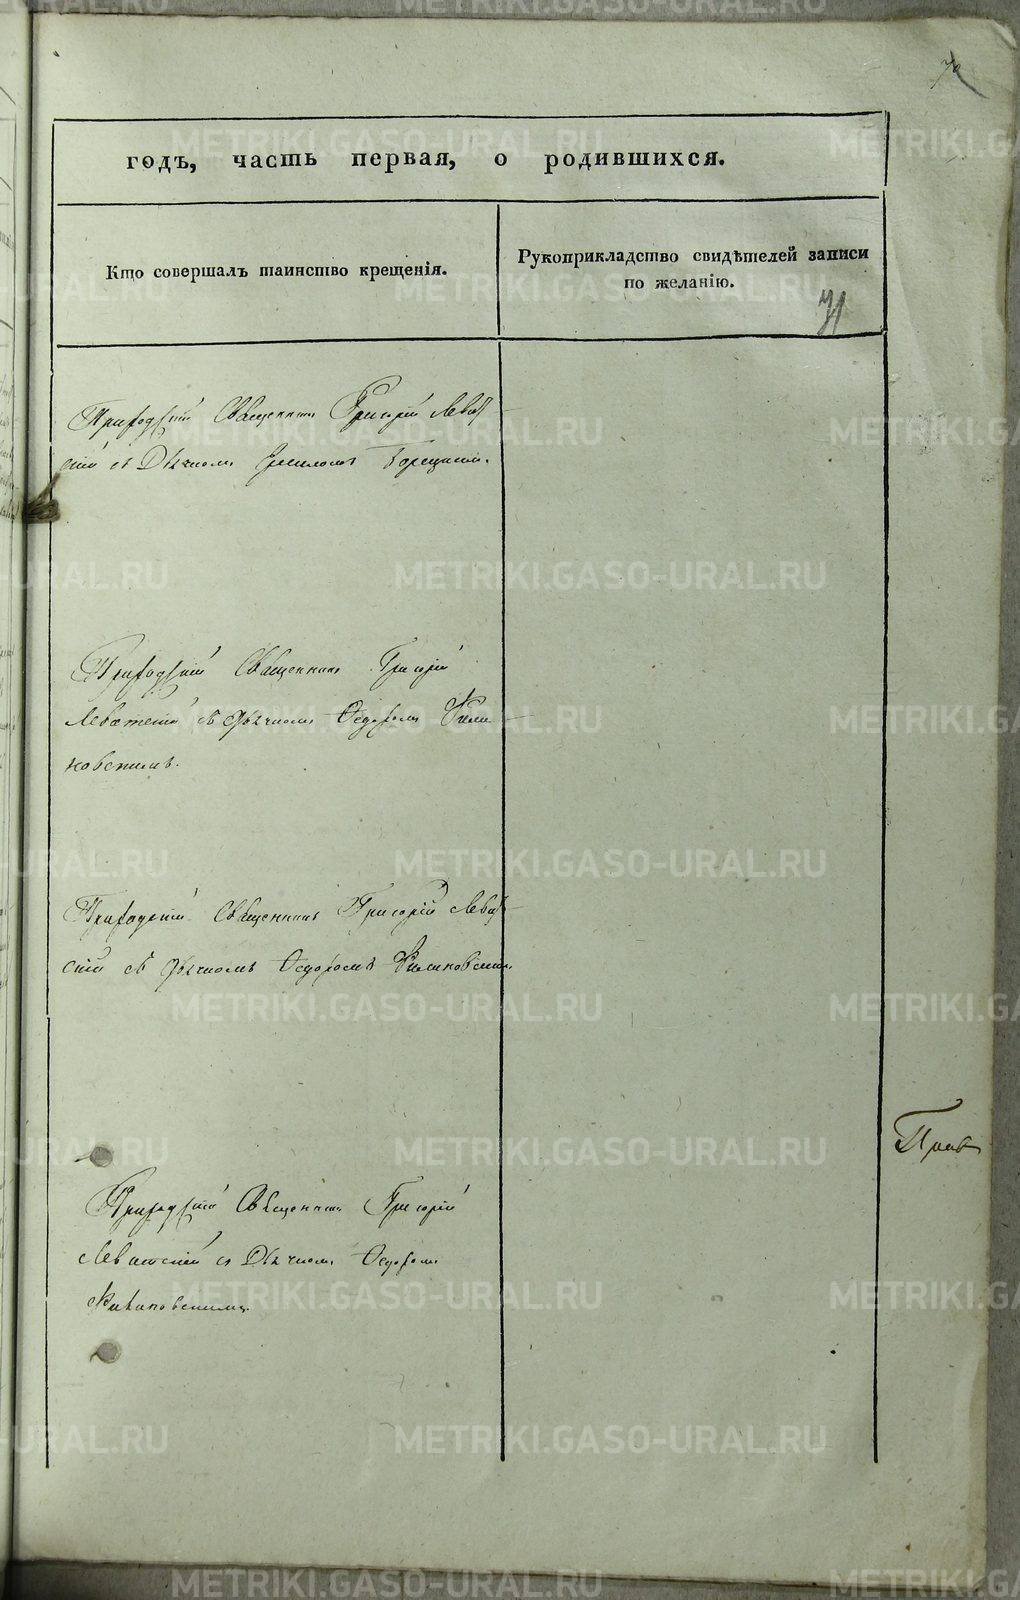 70
годъ, часть первая, о родившихся.
Кто совершалъ таинство крещенія.
Рукоприкладство свидѣтелей записи
по желанію.
71
Приходскій Священникъ Григорій Левит
скій съ Дьячкомъ
Приходскій Священникъ Григорій
Левитскій съ Дьячкомъ Ѳедоромъ
ковскимъ.
Приходскій Священникъ Григорій Левит
скій съ Дьячкомъ Ѳедоромъ
Приходскій Священникъ Григорій
Левитскій съ Дьячкомъ Ѳедоромъ
METRIKI.GASO-URAL.RU